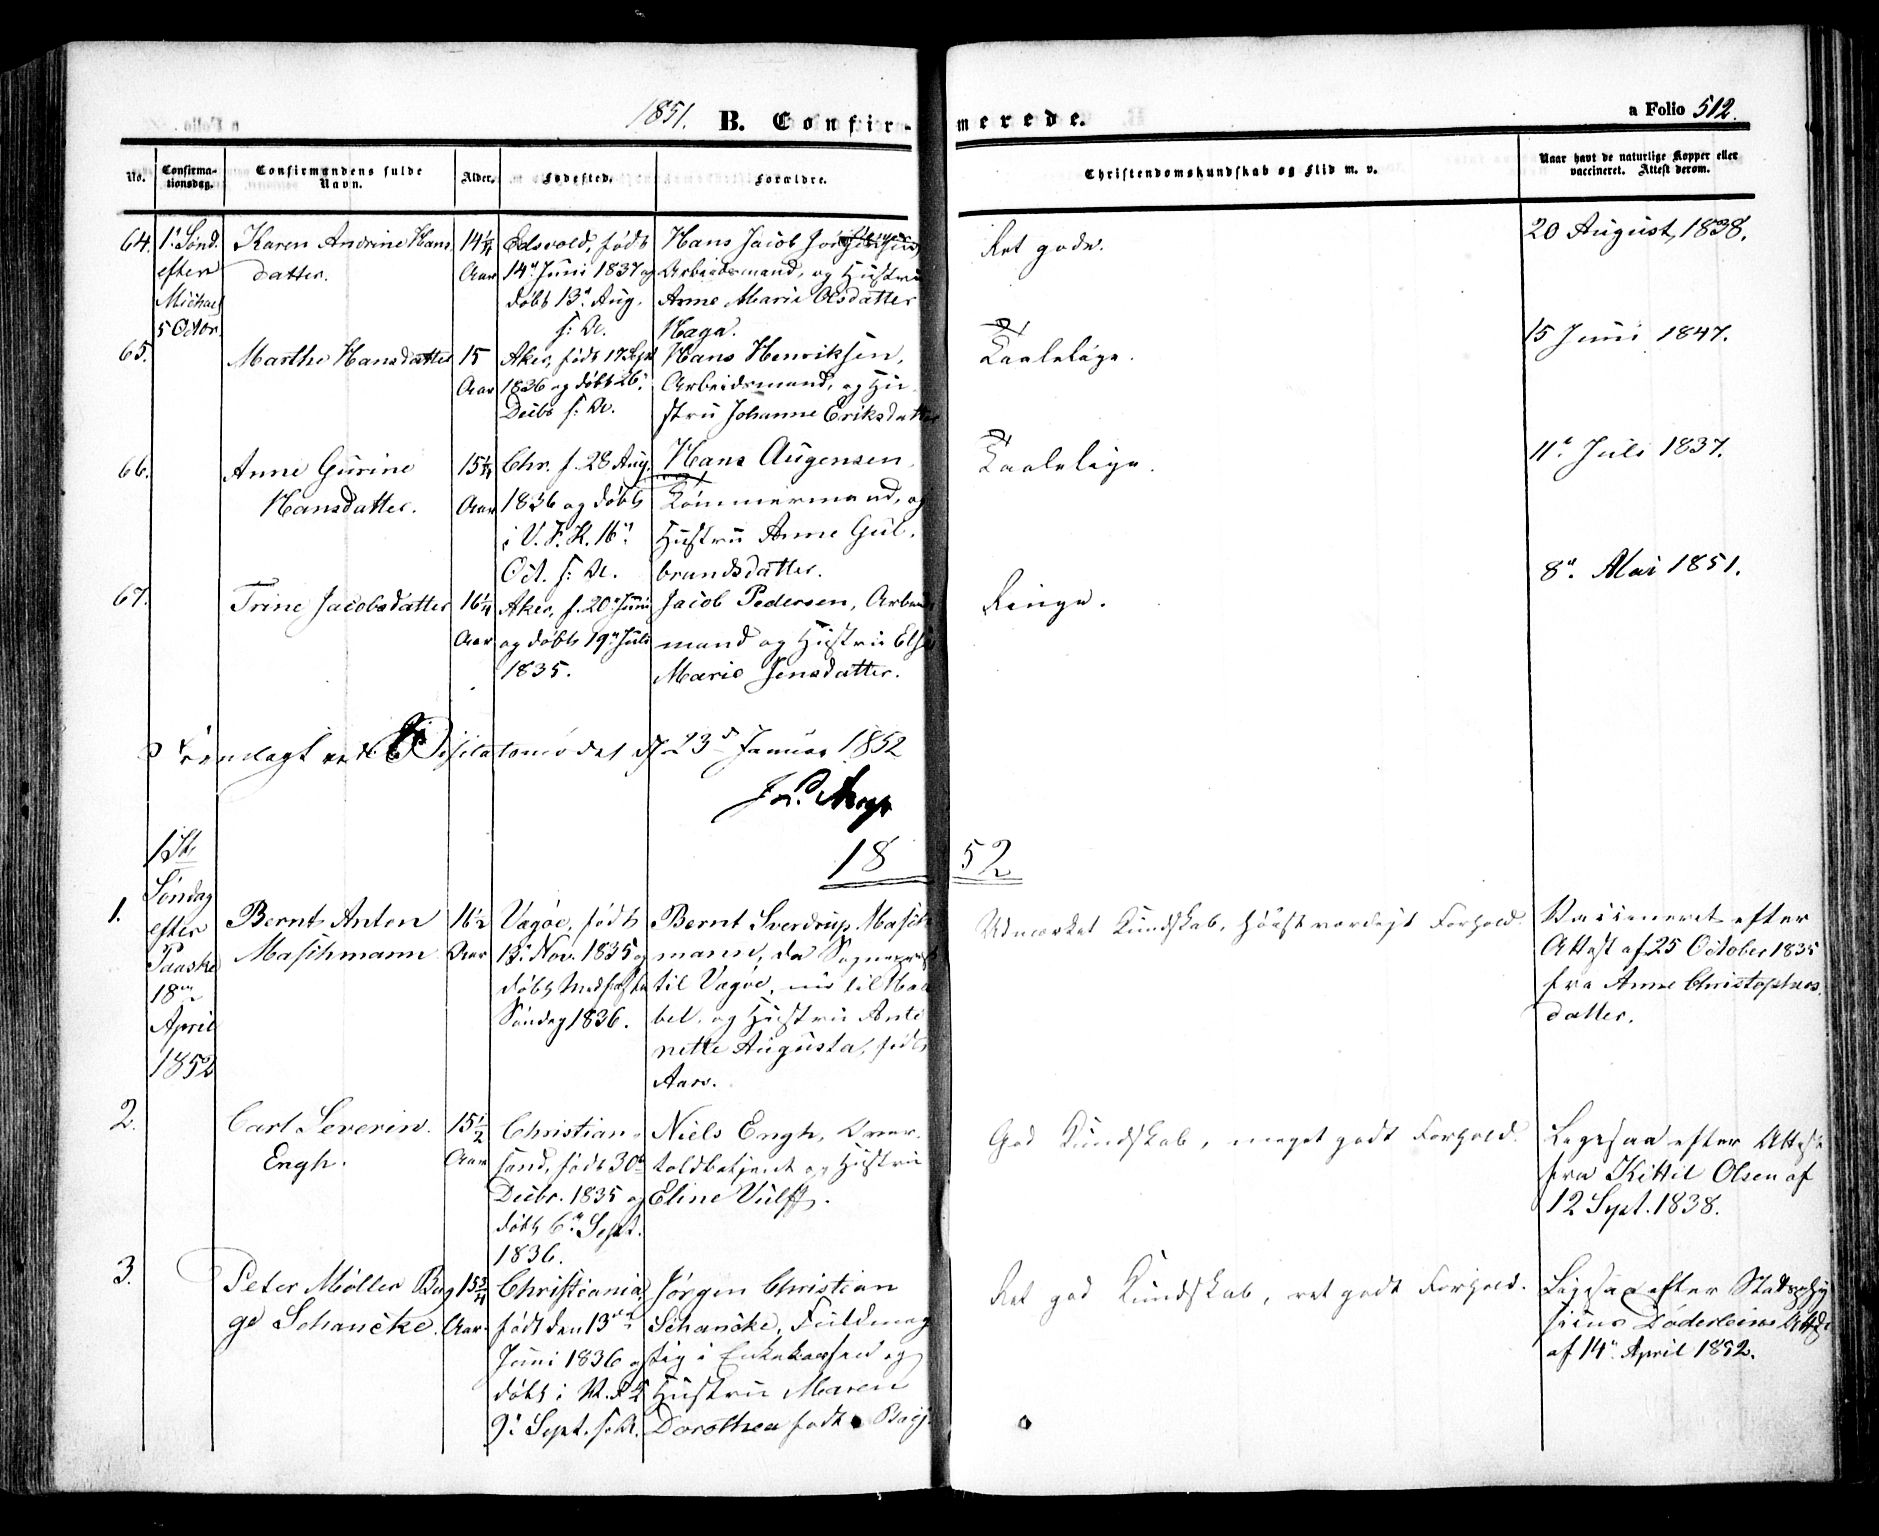 1851. B. Confirmerede. a Folio 512.
No. Confirmationsdag. Confirmandens fulde Navn. Alder. Fødested. Forældre. Christendomskundskab og Flid m. v. Naar havt de naturlige Kopper eller vaccineret. Attest derom.
64. 1ste Sønd. efter Michael 5 Octor.
Karen Andrine Hans
datter.
14 1/4
Aar
Edsvold, født
14de Juni 1837 og
døbt 13de Aug.
s: A.
Hans Jacob
Arbeidsmand, og Hustru
Anne Marie Olsdatter
Haga.
Ret gode.
20 August, 1838.
65.
Marthe Hansdatter
15
Aar
Aker, født 17 Sept
1836 og døbt 26de
Decbr s: A.
Hans Henriksen,
Arbeidsmand, og Hu-
stru Johanne Eriksdatter
Taalelige.
15 Juni 1847.
66.
Anne Gurine
Hansdatter.
15 1/4
Aar
Chr. f. 28 Aug.
1836 og døbt
i V. F. K. 16de
Oct. s: A.
Hans Augensen,
Tømmermand, og
Hustru Anne Gul-
brandsdatter.
Taalelige.
11te Juli 1837.
67.
Trine Jacobsdatter
16 1/4
Aar
Aker, f. 20de Juni
og døbt 19de Juli
1835.
Jacob Pedersen, Arbeids
mand og Hustru Else
Marie Jensdatter.
Ringe.
8de Mai 1851.
Fremlagt ved Visitatsmødet d. 23de Januar 1852
1852
1ste
Søndag
efter
Paaske
18de
April
1852
1.
Bernt Anton
Maschmann
16 1/2
Aar
Vagøe, født
13de Nov. 1835 og
døbt Midfaste
Søndag 1836.
Bernt Sverdrup Masch-
mann, da Sognepræst
til Vagøe, nu til
og Hustru Anto
nette Augusta, født
Aars.
Udmærket Kundskab, høist værdigt Forhold.
Vaccineret efter
Attest af 25 October 1835
fra Anne Christophers
datter.
2.
Carl Severin
Engh.
15 1/2
Aar
Christian-
sand, født 30te
Decbr. 1835 og
døbt 6te Sept.
1836.
Niels Engh, Over-
toldbetjent og Hustru
Eline Vulff.
God Kundskab, meget godt Forhold.
Ligesaa efter Attest
fra Kittil Olsen af
12 Sept. 1838.
3.
Peter Møller Bag
ge Schancke.
15 3/4
Aar.
Christiania,
født den 13de
Juni 1836 og
døbt i
9de Sept. s. A.
Jørgen Christian
Schancke, Fuldmæg
tig i Enkekassen og
Hustru Maren
Dorothea født Bagge
Ret god Kundskab, ret godt Forhold.
Ligesaa efter Statsphy
sicus Døderleins Attest
af 14de April 1852.